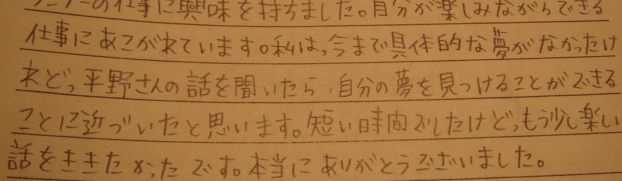 ナーの仕事に興味を持ちました。自分が楽しみながらできる
仕事にあこがれています。私は、今まで具体的な夢がなかったけ
れど、平野さんの話を聞いたら、自分の夢を見つけることができる
ことに近づいたと思います。短い時間でしたけど、もう少し楽しい
話をききたかったです。本当にありがとうございました。